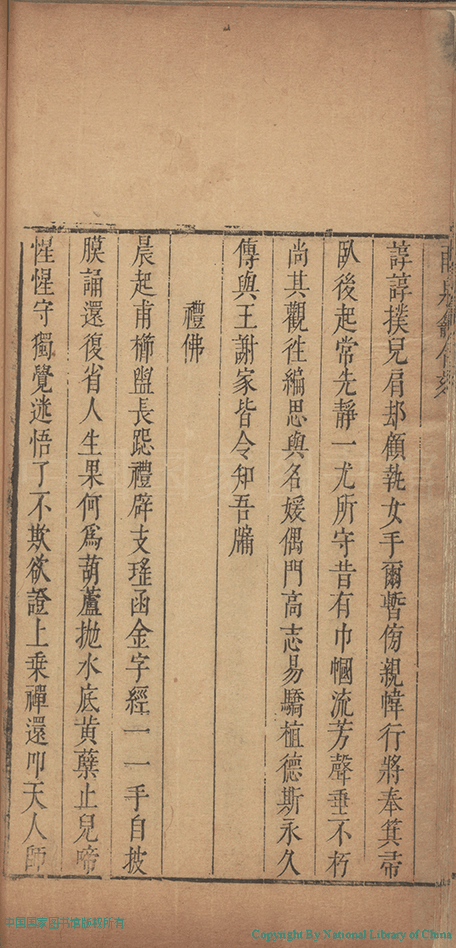 諄諄撲兒肩却顧執女手爾暫傍親幃行將奉箕帚
臥後起常先靜一尤所守昔有巾幗流芳聲垂不朽
尚其觀徃編思與名媛偶門高志易驕植德斯永久
傳與王謝家皆令知吾牖
禮佛
晨起甫櫛盥長跽禮辟支瑤函金字經一一手自披
膜誦還復省人生果何爲葫蘆抛水底黄蘗止兒啼
惺惺守獨覺迷悟了不欺欲證上乗禪還叩天人師
中国国家图书馆版权所有
Copyright By National Library of China